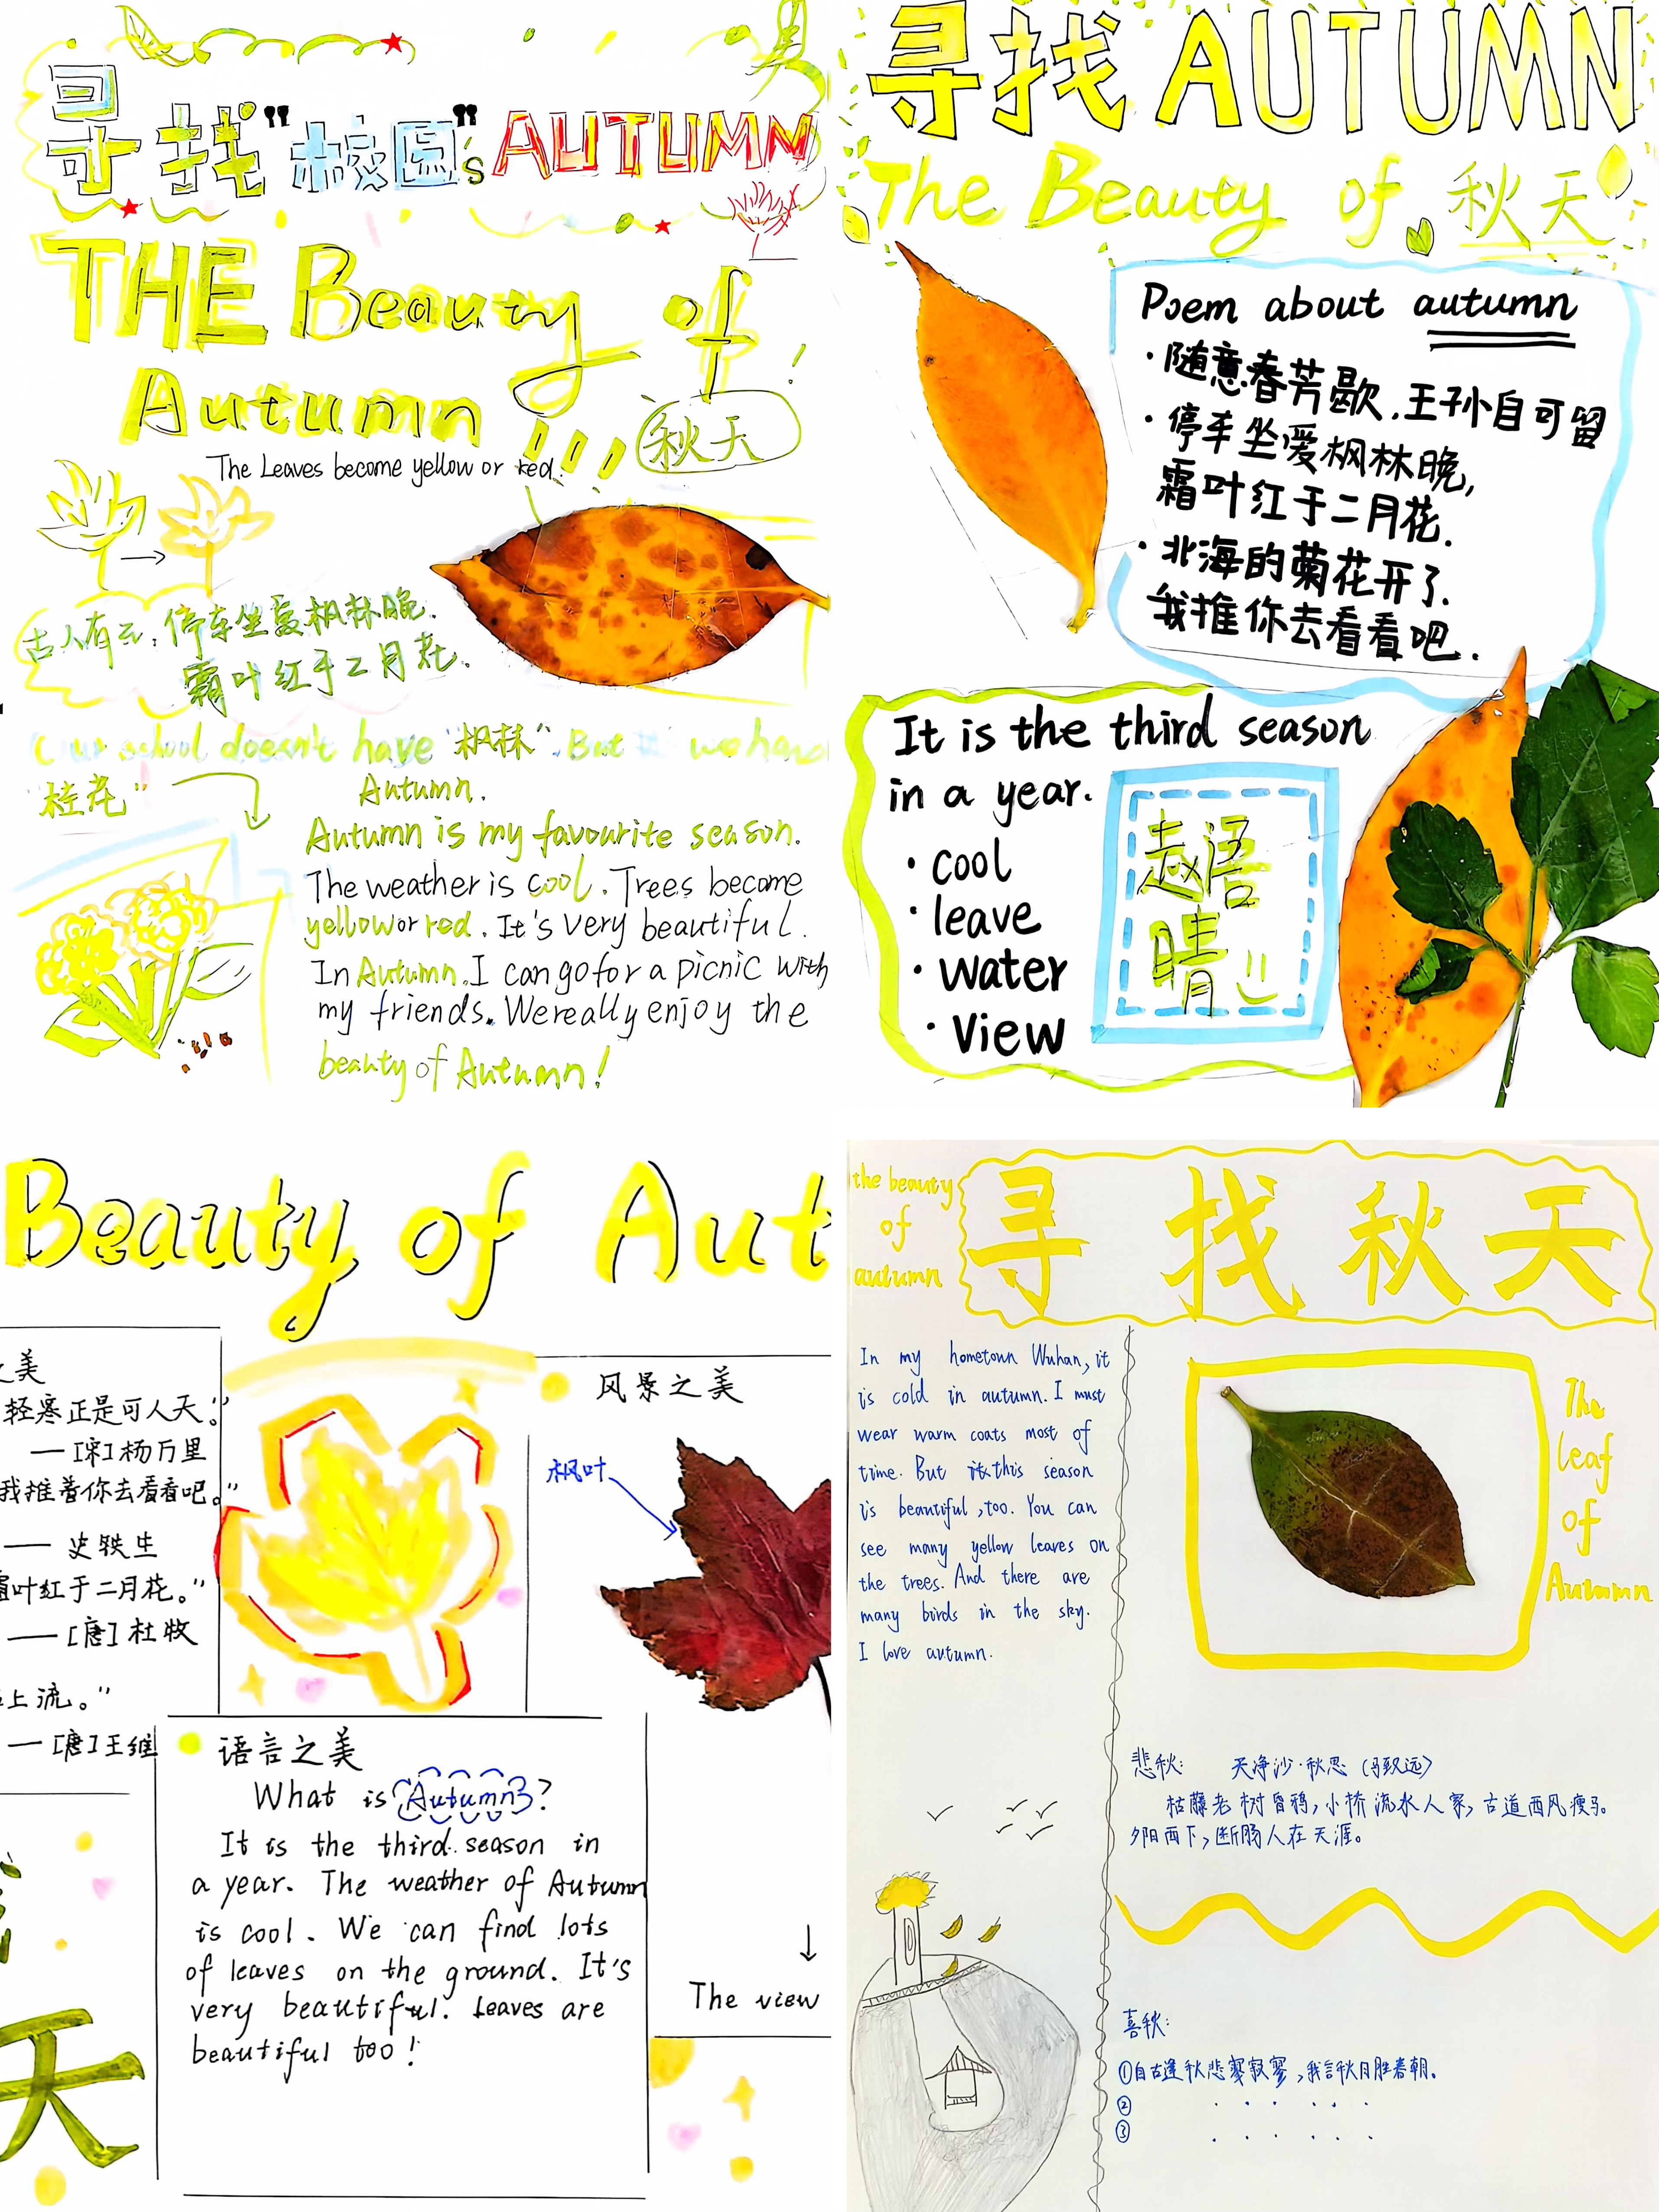 寻找"校园"'s AUTUMN
THE Beauty of
Autumn !!!
秋天
The Leaves become yellow or red.
古人有云:停车坐爱枫林晚.
霜叶红于二月花.
Our school doesn't have "枫林". But we have
"桂花"
Autumn.
Autumn is my favourite season.
The weather is cool. Trees become
yellow or red. It's very beautiful.
In Autumn, I can go for a picnic with
my friends. We really enjoy the
beauty of Autumn!
寻找 AUTUMN
The Beauty of 秋天
Poem about autumn
·随意春芳歇,王孙自可留
·停车坐爱枫林晚,
霜叶红于二月花.
·北海的菊花开了.
我推你去看看吧.
It is the third season
in a year.
·cool
·leave
·water
·View
赵语
晴
Beauty of Aut
之美
轻寒正是可人天。"
——[宋]杨万里
我推着你去看看吧。"
——史铁生
霜叶红于二月花。"
——[唐]杜牧
上流。"
——[唐]王维
天
风景之美
枫叶
The view
语言之美
What is Autumn?
It is the third season in
a year. The weather of Autumn
is cool. We can find lots
of leaves on the ground. It's
very beautiful. Leaves are
beautiful too!
the beauty
of
autumn
寻找秋天
In my hometown Wuhan, it
is cold in autumn. I must
wear warm coats most of
time. But this season
is beautiful, too. You can
see many yellow leaves on
the trees. And there are
many birds in the sky.
I love autumn.
The
leaf
of
Autumn
悲秋: 天净沙·秋思(马致远)
枯藤老树昏鸦,小桥流水人家,古道西风瘦马。
夕阳西下,断肠人在天涯。
喜秋:
①自古逢秋悲寂寥,我言秋日胜春朝。
② · · · · · ·
③ · · · · · ·